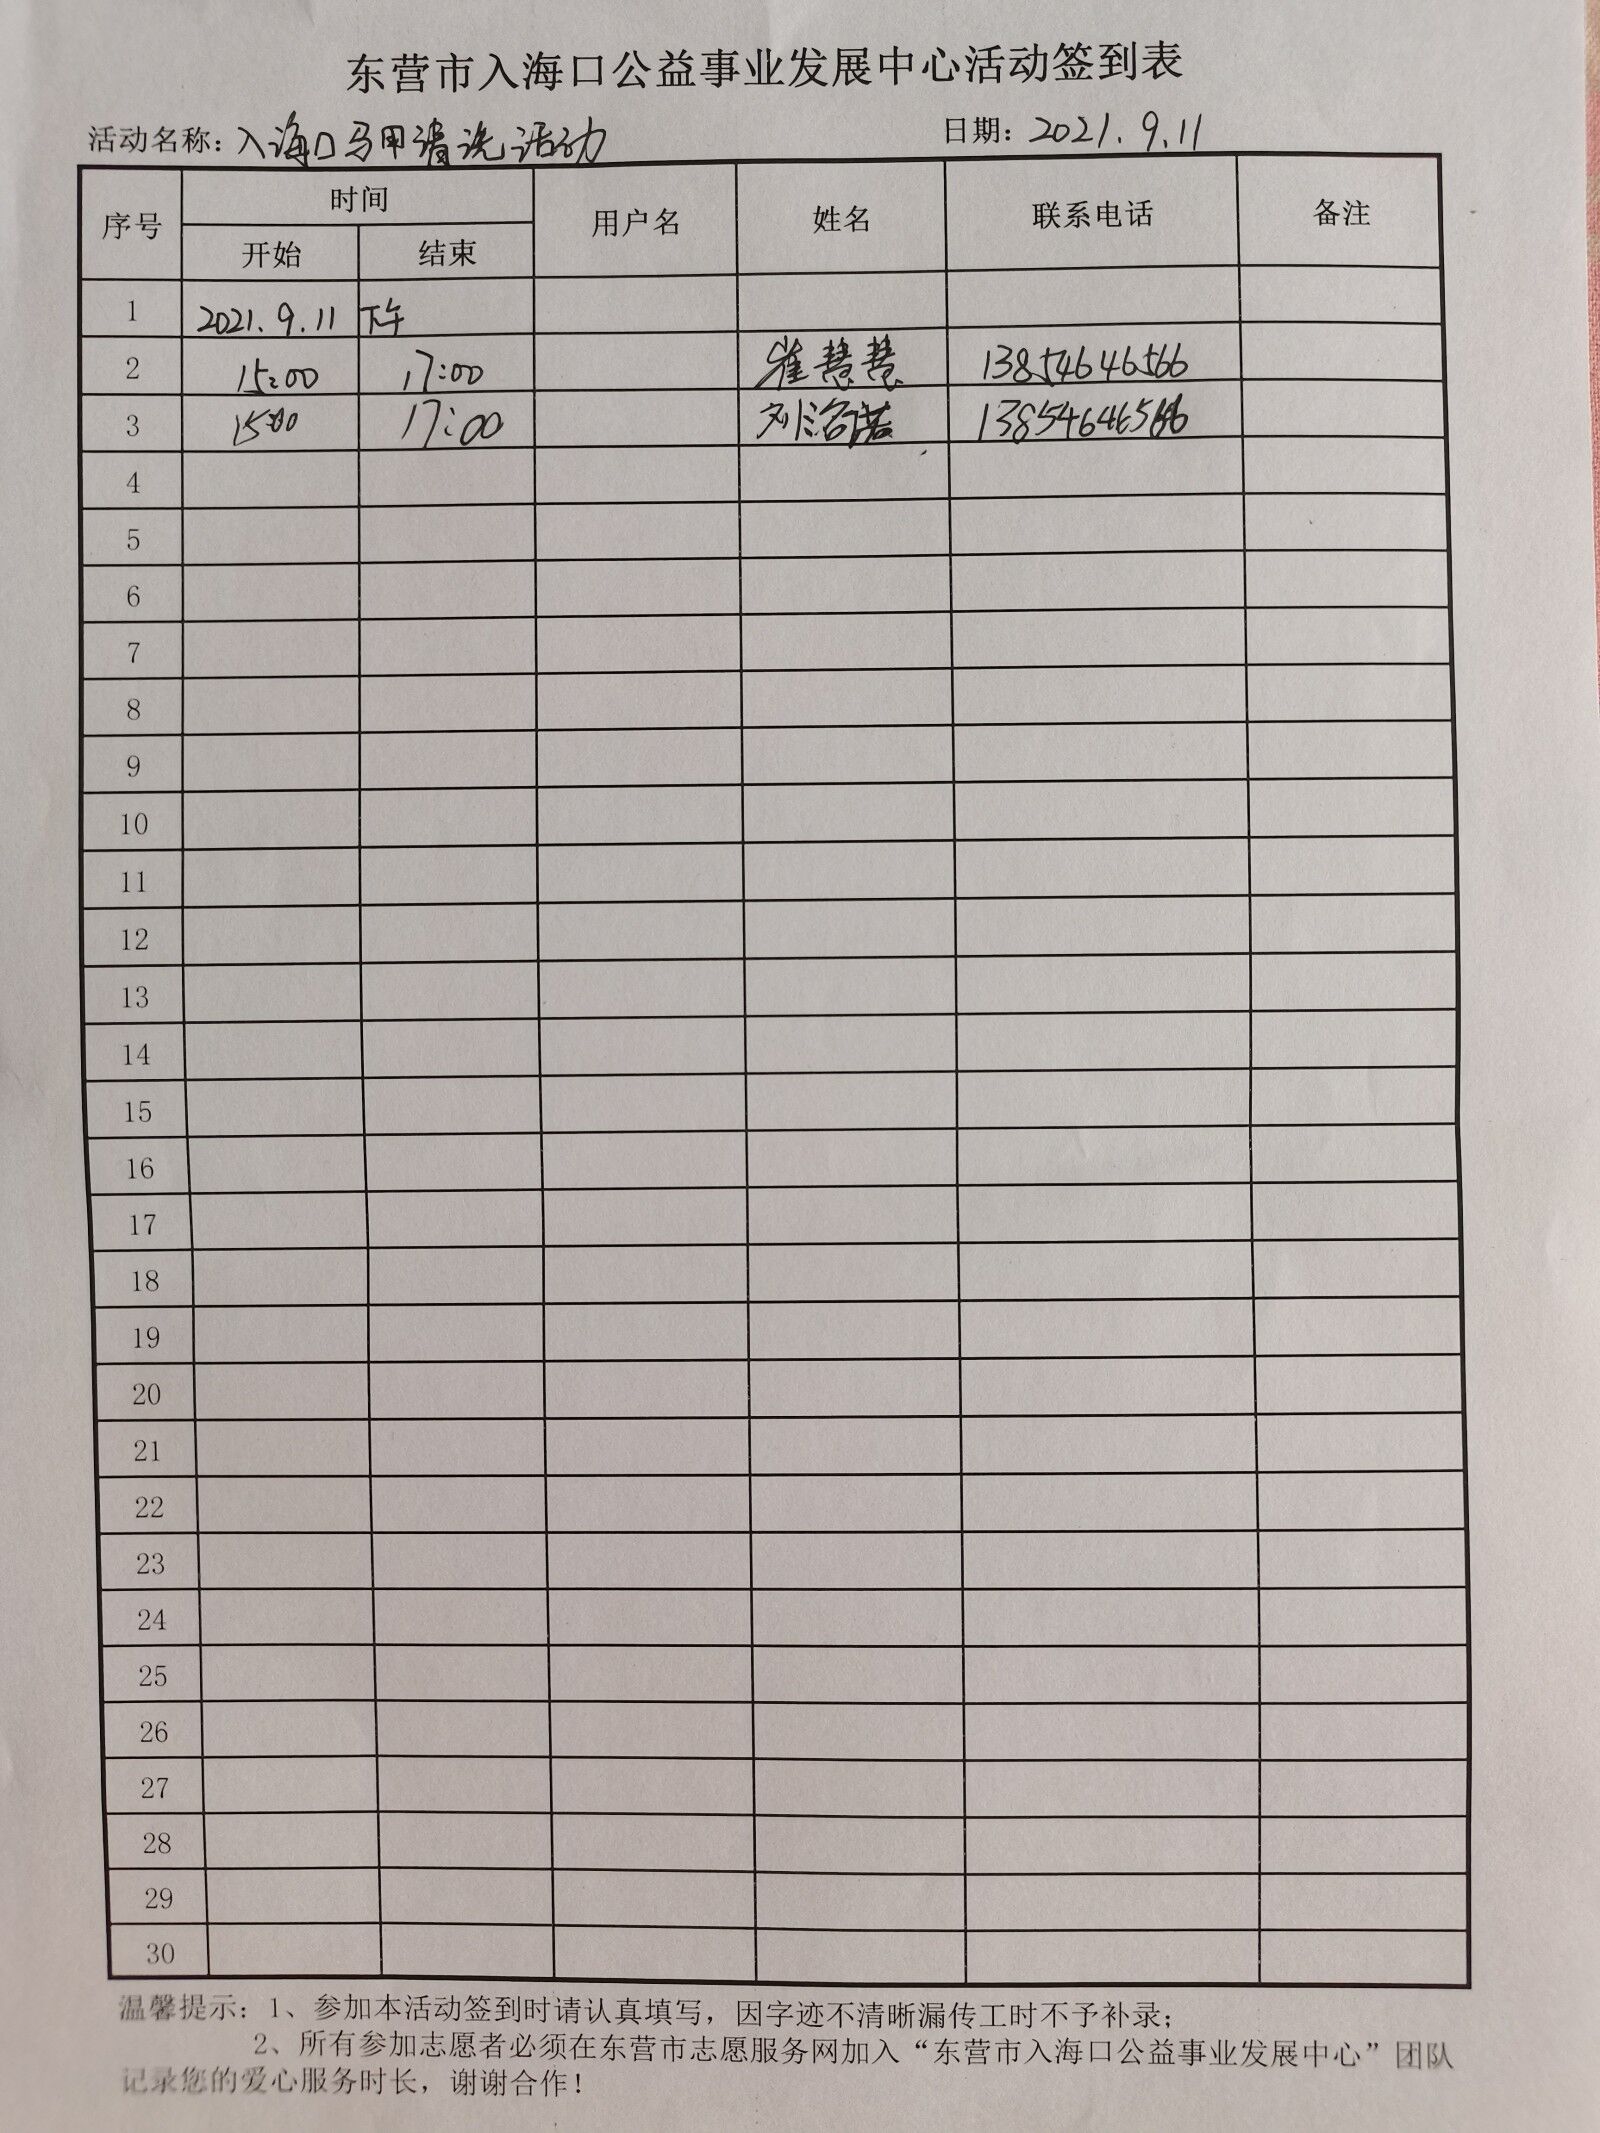 东营市入海口公益事业发展中心活动签到表
活动名称：入海口马甲清洗活动 日期：2021.9.11
序号 时间 用户名 姓名 联系电话 备注
开始 结束
1 2021.9.11 下午
2 15:00 17:00 崔慧慧 13854646566
3 15:00 17:00 刘洺诺 13854646566
4
5
6
7
8
9
10
11
12
13
14
15
16
17
18
19
20
21
22
23
24
25
26
27
28
29
30
温馨提示：1、参加本活动签到时请认真填写，因字迹不清晰漏传工时不予补录；
2、所有参加志愿者必须在东营市志愿服务网加入“东营市入海口公益事业发展中心”团队
记录您的爱心服务时长，谢谢合作！